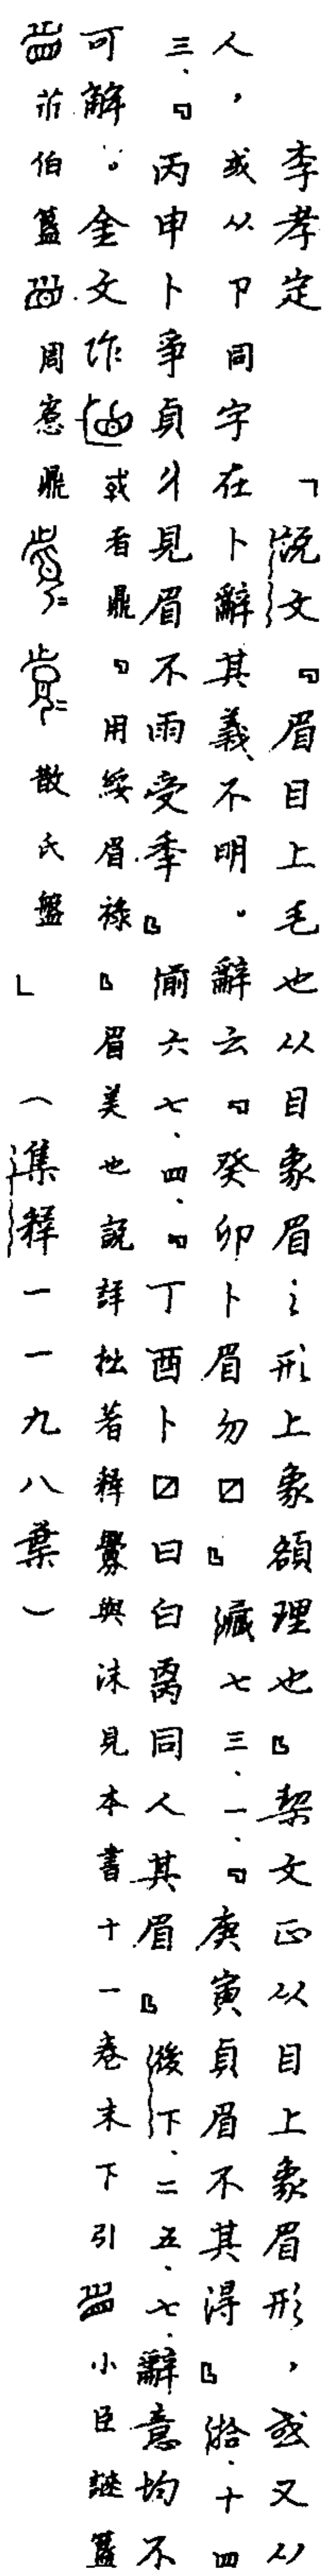 李孝定　「說文『眉目上毛也从目象眉之形上象頟理也』栔文正从目上象眉形，或又从
人，或从卩同字在卜辭其義不明。辭云『癸卯卜眉勿囗』藏七三．一．『庚寅貞眉不其得』拾．十四
三．『丙申卜爭貞見眉不雨受年』前六七．四．『丁酉卜囗曰白同人其眉』後下．二五．七．辭意均不
可解。金文作或者鼎『用綏眉祿』眉美也說詳拙著釋釁與沬見本書十一卷末下引小臣謎簋
伯簋周窸鼎散氏盤」（集釋一一九八葉）